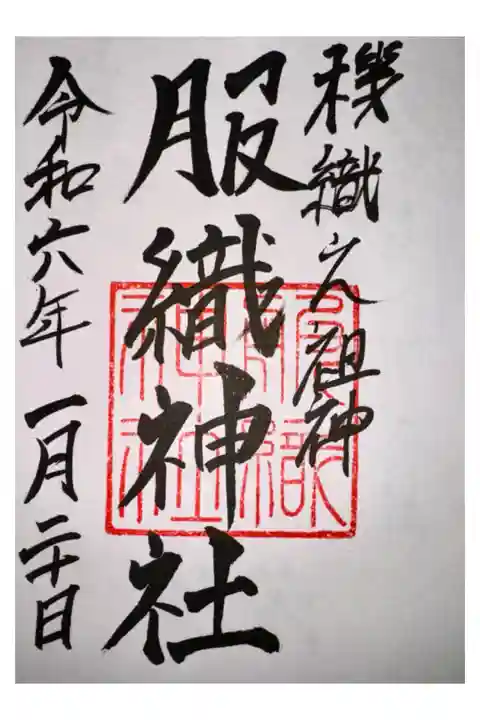 機織之祖神
服織神社
服織神社
令和六年一月二十日